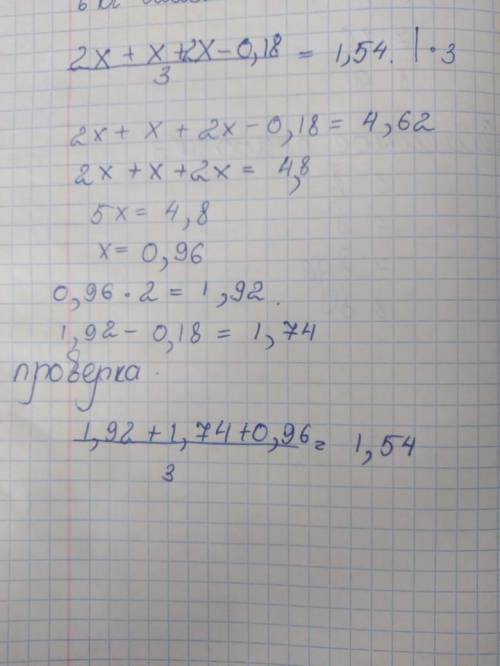 2x + x + 2x - 0,18 = 1,54. | · 3
3
2x + x + 2x - 0,18 = 4,62
2x + x + 2x = 4,8
5x = 4,8
x = 0,96
0,96 · 2 = 1,92.
1,92 - 0,18 = 1,74
проверка.
1,92 + 1,74 + 0,96 = 1,54
3